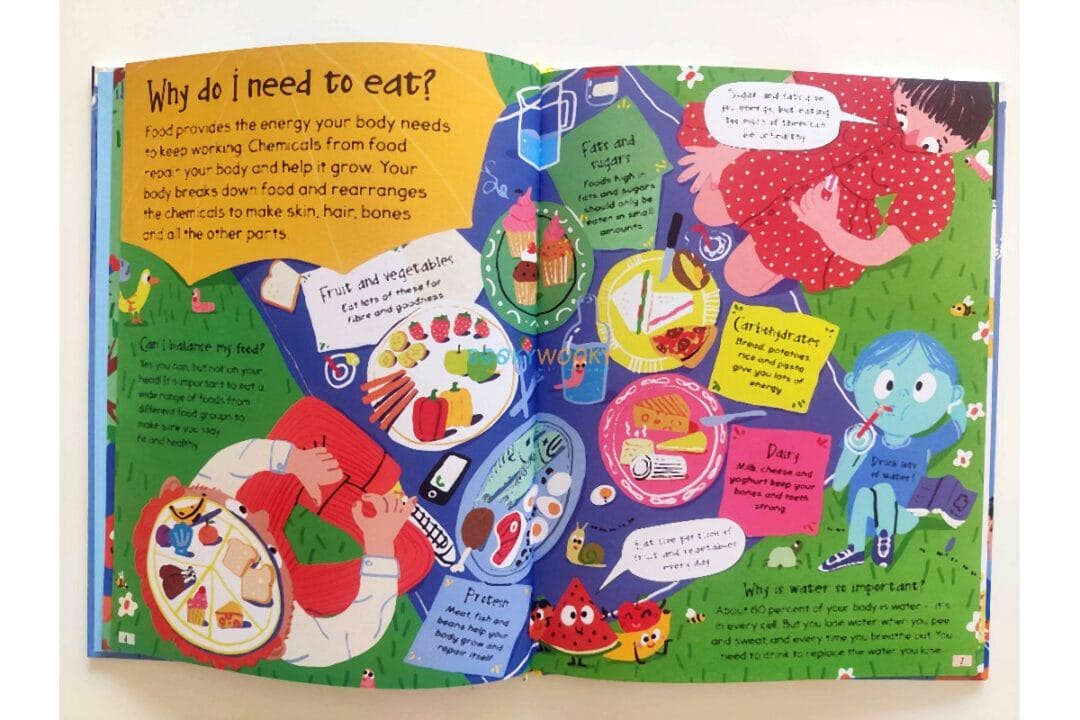 Why do I need to eat?
Food provides the energy your body needs
to keep working. Chemicals from food
repair your body and help it grow. Your
body breaks down food and rearranges
the chemicals to make skin, hair, bones
and all the other parts.
Fruit and vegetables
Eat lots of these for
fibre and goodness
Can I balance my food?
Yes you can, but not on your
head! It's important to eat a
wide range of foods from
different food groups to
make sure you stay
fit and healthy.
Protein
Meat, fish and
beans help your
body grow and
repair itself
Fats and
sugars
Foods high in
fats and sugars
should only be
eaten in small
amounts
Sugar and fats give
you energy, but eating
too much of them can
be unhealthy
Carbohydrates
Bread, potatoes,
rice and pasta
give you lots of
energy
Dairy
Milk, cheese and
yoghurt keep your
bones and teeth
strong
Drink lots
of water!
Eat five portions of
fruit and vegetables
every day
Why is water so important?
About 60 percent of your body is water - it's
in every cell. But you lose water when you pee
and sweat, and every time you breathe out. You
need to drink to replace the water you lose.